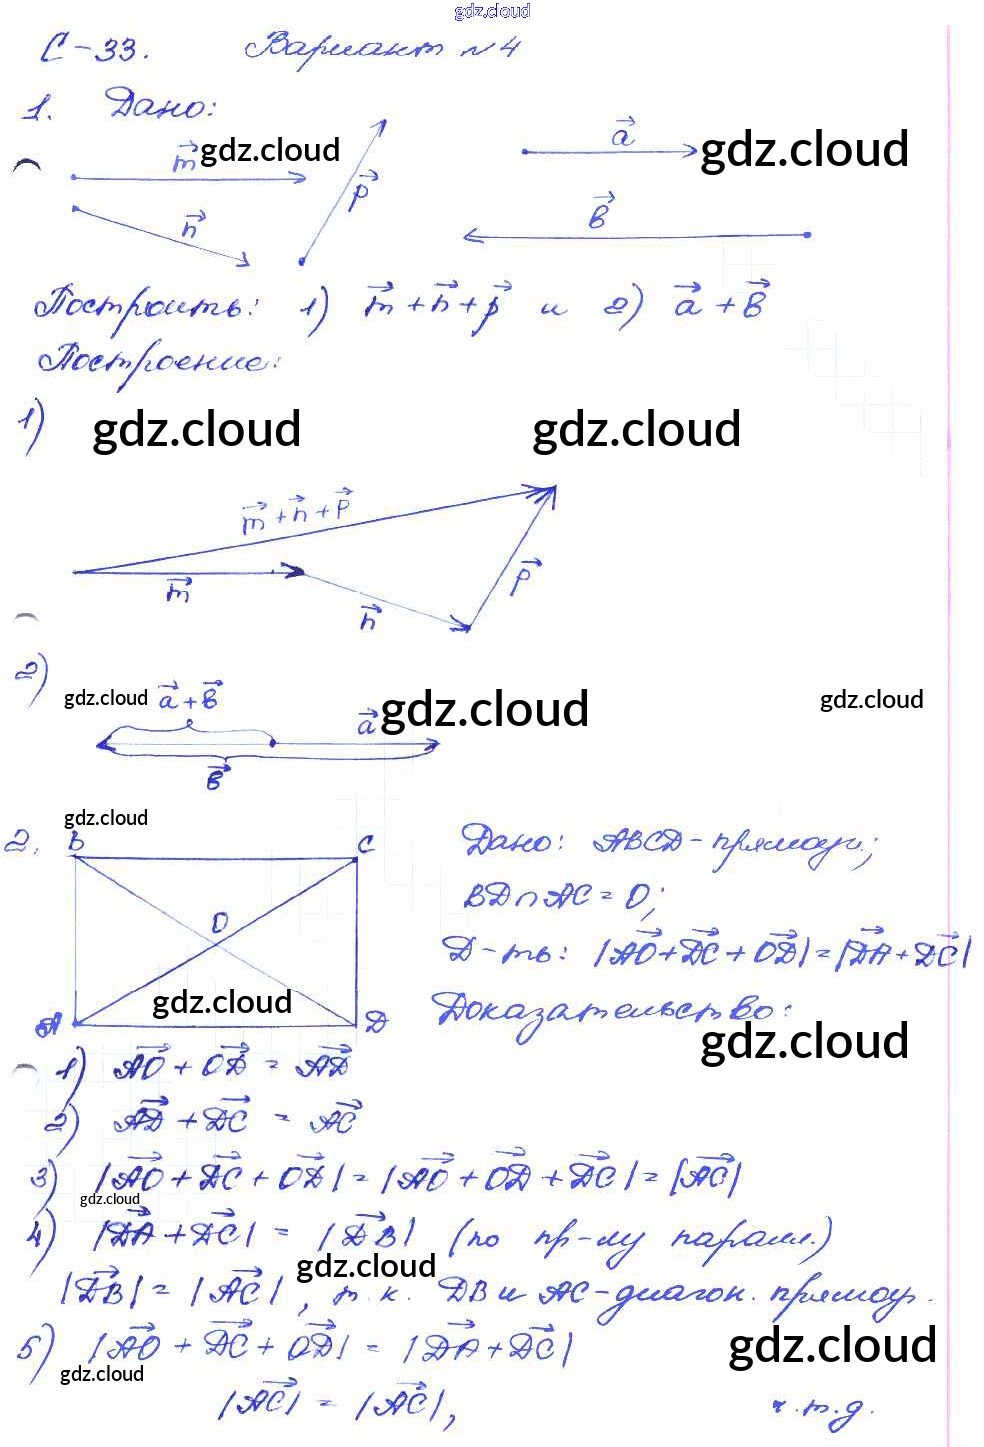 gdz.cloud
С-33. Вариант №4
1. Дано:
m⃗ gdz.cloud p⃗ a⃗ gdz.cloud
n⃗ b⃗
Построить: 1) m⃗ + n⃗ + p⃗ и 2) a⃗ + b⃗
Построение:
1) gdz.cloud gdz.cloud
m⃗ + n⃗ + p⃗
m⃗ n⃗ p⃗
2)
gdz.cloud a⃗ + b⃗ a⃗ gdz.cloud gdz.cloud
b⃗
gdz.cloud
2. B C Дано: ABCD - прямоуг.;
O BD∩AC = O;
Д-ть: |AO⃗ + DC⃗ + OD⃗| = |DA⃗ + DC⃗|
gdz.cloud
A D Доказательство:
gdz.cloud
1) AO⃗ + OD⃗ = AD⃗
2) AD⃗ + DC⃗ = AC⃗
3) |AO⃗ + DC⃗ + OD⃗| = |AO⃗ + OD⃗ + DC⃗| = |AC⃗|
gdz.cloud
4) |DA⃗ + DC⃗| = |DB⃗| (по пр-лу паралл.)
gdz.cloud
|DB⃗| = |AC⃗|, т.к. DB и AC - диагон. прямоуг.
5) |AO⃗ + DC⃗ + OD⃗| = |DA⃗ + DC⃗|
gdz.cloud gdz.cloud
|AC⃗| = |AC⃗|, ч.т.д.